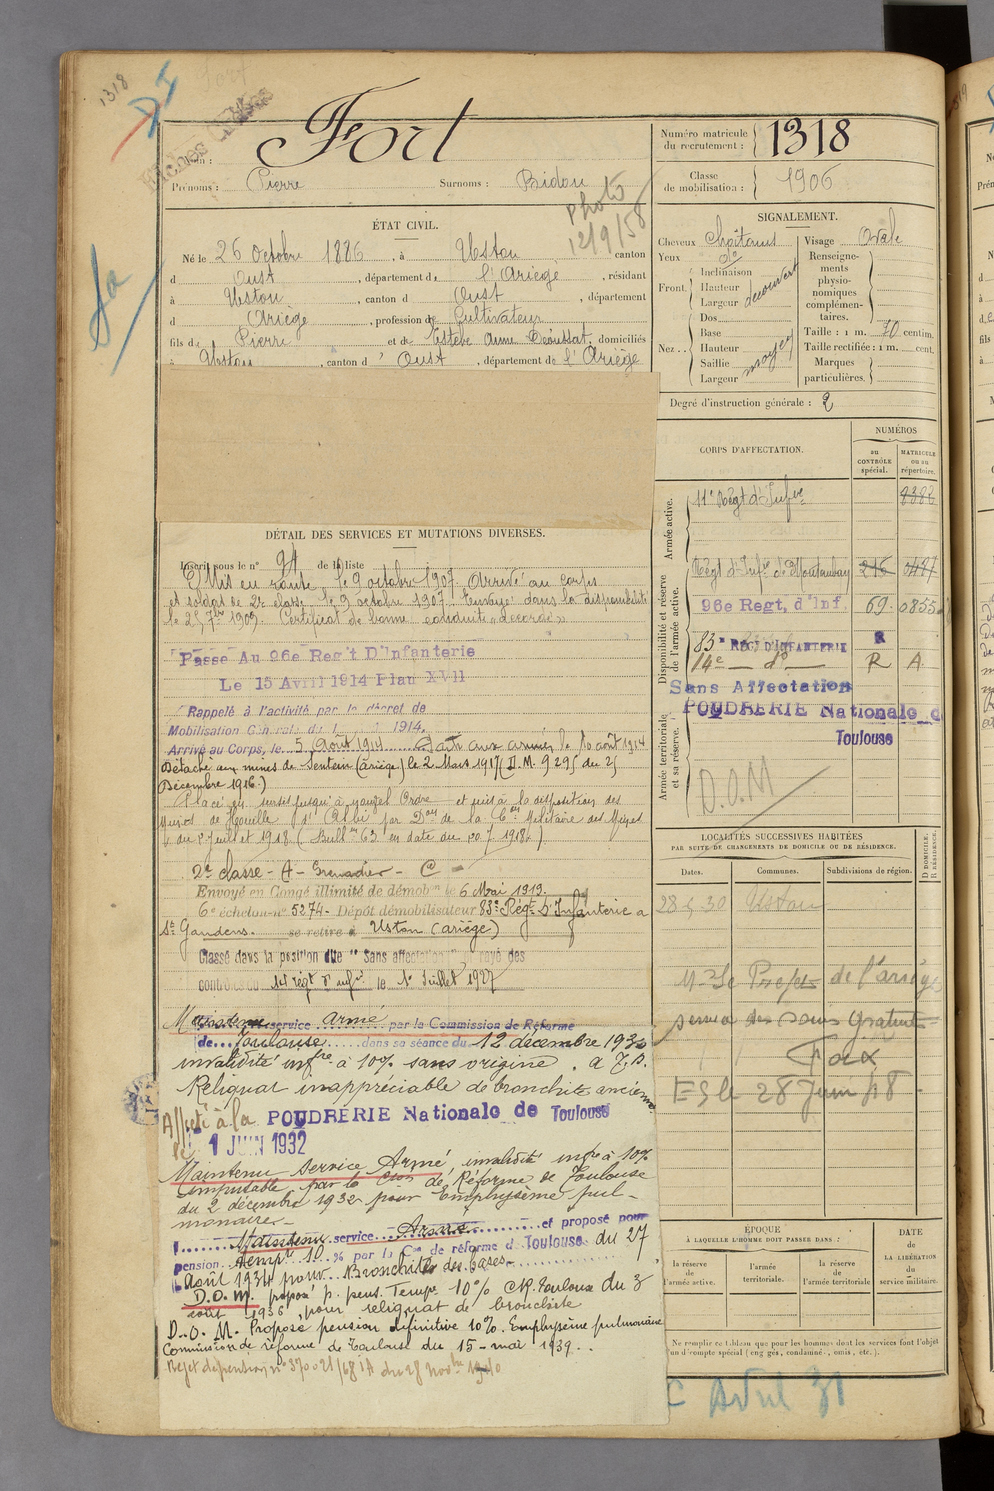 1318
Fort
Fiches
Nom :
Fort
Numéro matricule
du recrutement :
1318
Prénoms : Pierre
Surnoms : Bidou
Classe
de mobilisation :
1906
Photo
12/9/58
ÉTAT CIVIL.
Né le 26 Octobre 1886, à Ustou canton
d Oust, département de l'Ariège, résidant
à Ustou, canton d Oust, département
d Ariège, profession de Cultivateur
fils de Pierre et de Estèbe Anne Deoussat, domiciliés
à Ustou, canton d' Oust, département de l'Ariège
SIGNALEMENT.
Cheveux châtains
Yeux do
Front.
Inclinaison
Hauteur
Largeur
découvert
Nez..
Dos
Base
Hauteur
Saillie
Largeur
moyen
Visage Ovale
Renseigne-
ments
physio-
nomiques
complémen-
taires.
Taille : 1 m. 70 centim.
Taille rectifiée : 1 m. cent.
Marques
particulières.
Degré d'instruction générale : 2
CORPS D'AFFECTATION.
NUMÉROS
au
CONTRÔLE
spécial.
MATRICULE
ou au
répertoire.
Armée active.
11e Régt d'Infrie
8382
Disponibilité et réserve
de l'armée active.
Régt d'Infie de Montauban 216 0487
96e Regt. d'Inf. 69. 0855
83e REGt D'INFANTERIE R
14e — do — R A
Sans Affectation
POUDRERIE Nationale d
Toulouse
Armée territoriale
et sa réserve.
D.O.M
DÉTAIL DES SERVICES ET MUTATIONS DIVERSES.
Inscrit sous le n° 94 de la liste
Mis en route le 9 octobre 1907. Arrivé au corps
et soldat de 2e classe le 9 octobre 1907. Envoyé dans la disponibilité
le 25 7bre 1909. Certificat de bonne conduite « accordé »
Passé Au 96e Reg't D'Infanterie
Le 15 Avril 1914 Plan XVII
Rappelé à l'activité par le décret de
Mobilisation Générale du 1 1914.
Arrivé au Corps, le 5 Août 1914 Parti aux armées le 10 août 1914
Détaché aux mines de Sentein (Ariège) le 2 Mars 1917 (D.M. 9295 du 25
Décembre 1916.)
Placé en sursis jusqu'à nouvel Ordre et mis à la disposition des
Mines de Houille d'Albi par Don de la Con Militaire des Mines
2e classe - A - Grenadier - C
Envoyé en Congé illimité de démobon le 6 Mai 1919.
6e échelon no 5274 - Dépôt démobilisateur 83e Régt d'Infanterie à
St Gaudens. se retire à Ustou (Ariège)
Classé dans la position dite "Sans affectation" rayé des
contrôles du 14e régt d'infie le 1e Juillet 1927
Maintenu service armé par la Commission de Réforme
de Toulouse dans sa séance du 12 décembre 1930
invalidité infre à 10% sans origine.
Reliquat inappréciable de bronchite ancienne
Affecté à la POUDRERIE Nationale de Toulouse
le 1 JUIN 1932
Maintenu service Armé, invalidité infre à 10%
imputable par la Cion de Réforme de Toulouse
du 2 décembre 1932 pour Emphysème pul-
monaire -
Maintenu service Armé et proposé pour
pension temp. 10 % par la Con de réforme de Toulouse du 27
Août 1934 pour Bronchite des bases
D.O.M. proposé p. pens. Temp. 10% CR. Toulouse du 3
août 1936, pour reliquat de bronchite
D.O.M. Propose pension définitive 10%. Emphysème pulmonaire
Commission de réforme de Toulouse du 15 - mai 1939.
Rejet de pension
LOCALITÉS SUCCESSIVES HABITÉES
PAR SUITE DE CHANGEMENTS DE DOMICILE OU DE RÉSIDENCE.
D DOMICILE.
R RÉSIDENCE.
Dates.
Communes.
Subdivisions de région.
28-5-30 Ustou
Mr Le Préfet de l'Ariège
service des soins Gratuits
Foix
ES le 28 Juin 48
ÉPOQUE
À LAQUELLE L'HOMME DOIT PASSER DANS :
la réserve
de
l'armée active.
l'armée
territoriale.
la réserve
de
l'armée territoriale
DATE
de
LA LIBÉRATION
du
service militaire.
Ne remplir ce tableau que pour les hommes dont les services font l'objet
d'un compte spécial (engagés, condamnés, omis, etc.).
C Avril 31